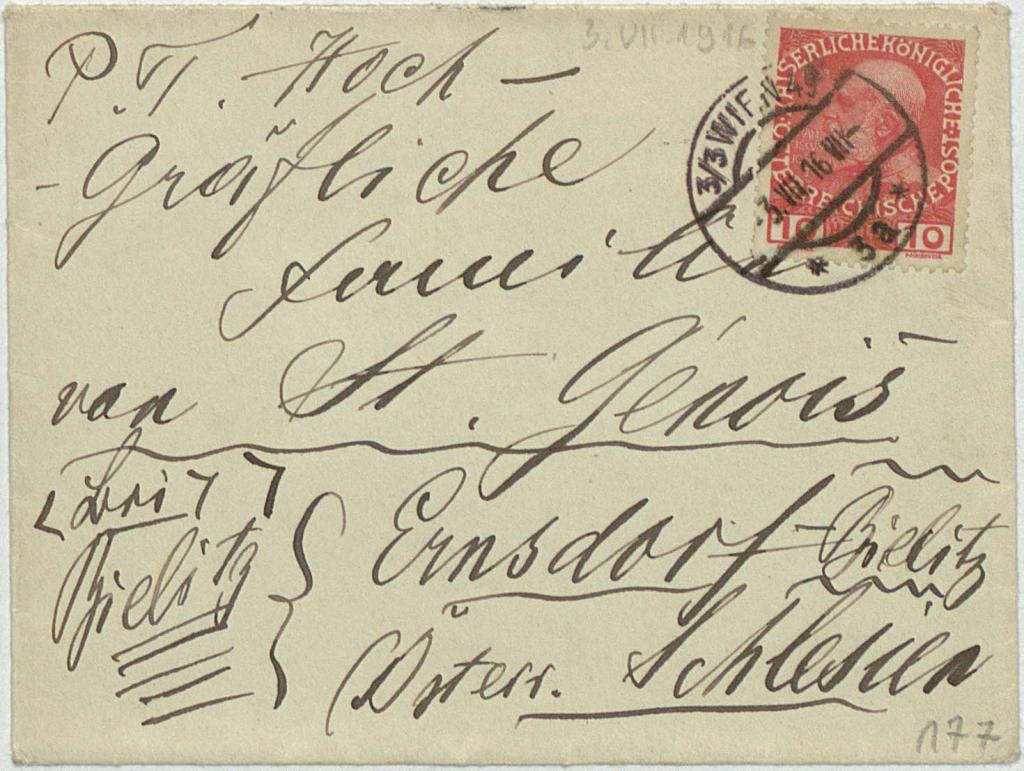 3. VII. 1916
P. T. Hoch-
- Gräfliche
Familie
van St. Génois
<bei>
Bielitz
Ernsdorf - Bielitz
Österr. Schlesien
KAISERLICHE KÖNIGLICHE
ÖSTERREICHISCHE POST
10 10
3/3 WIEN IV. 49
-3.VII.16 VII-
* 3a *
177